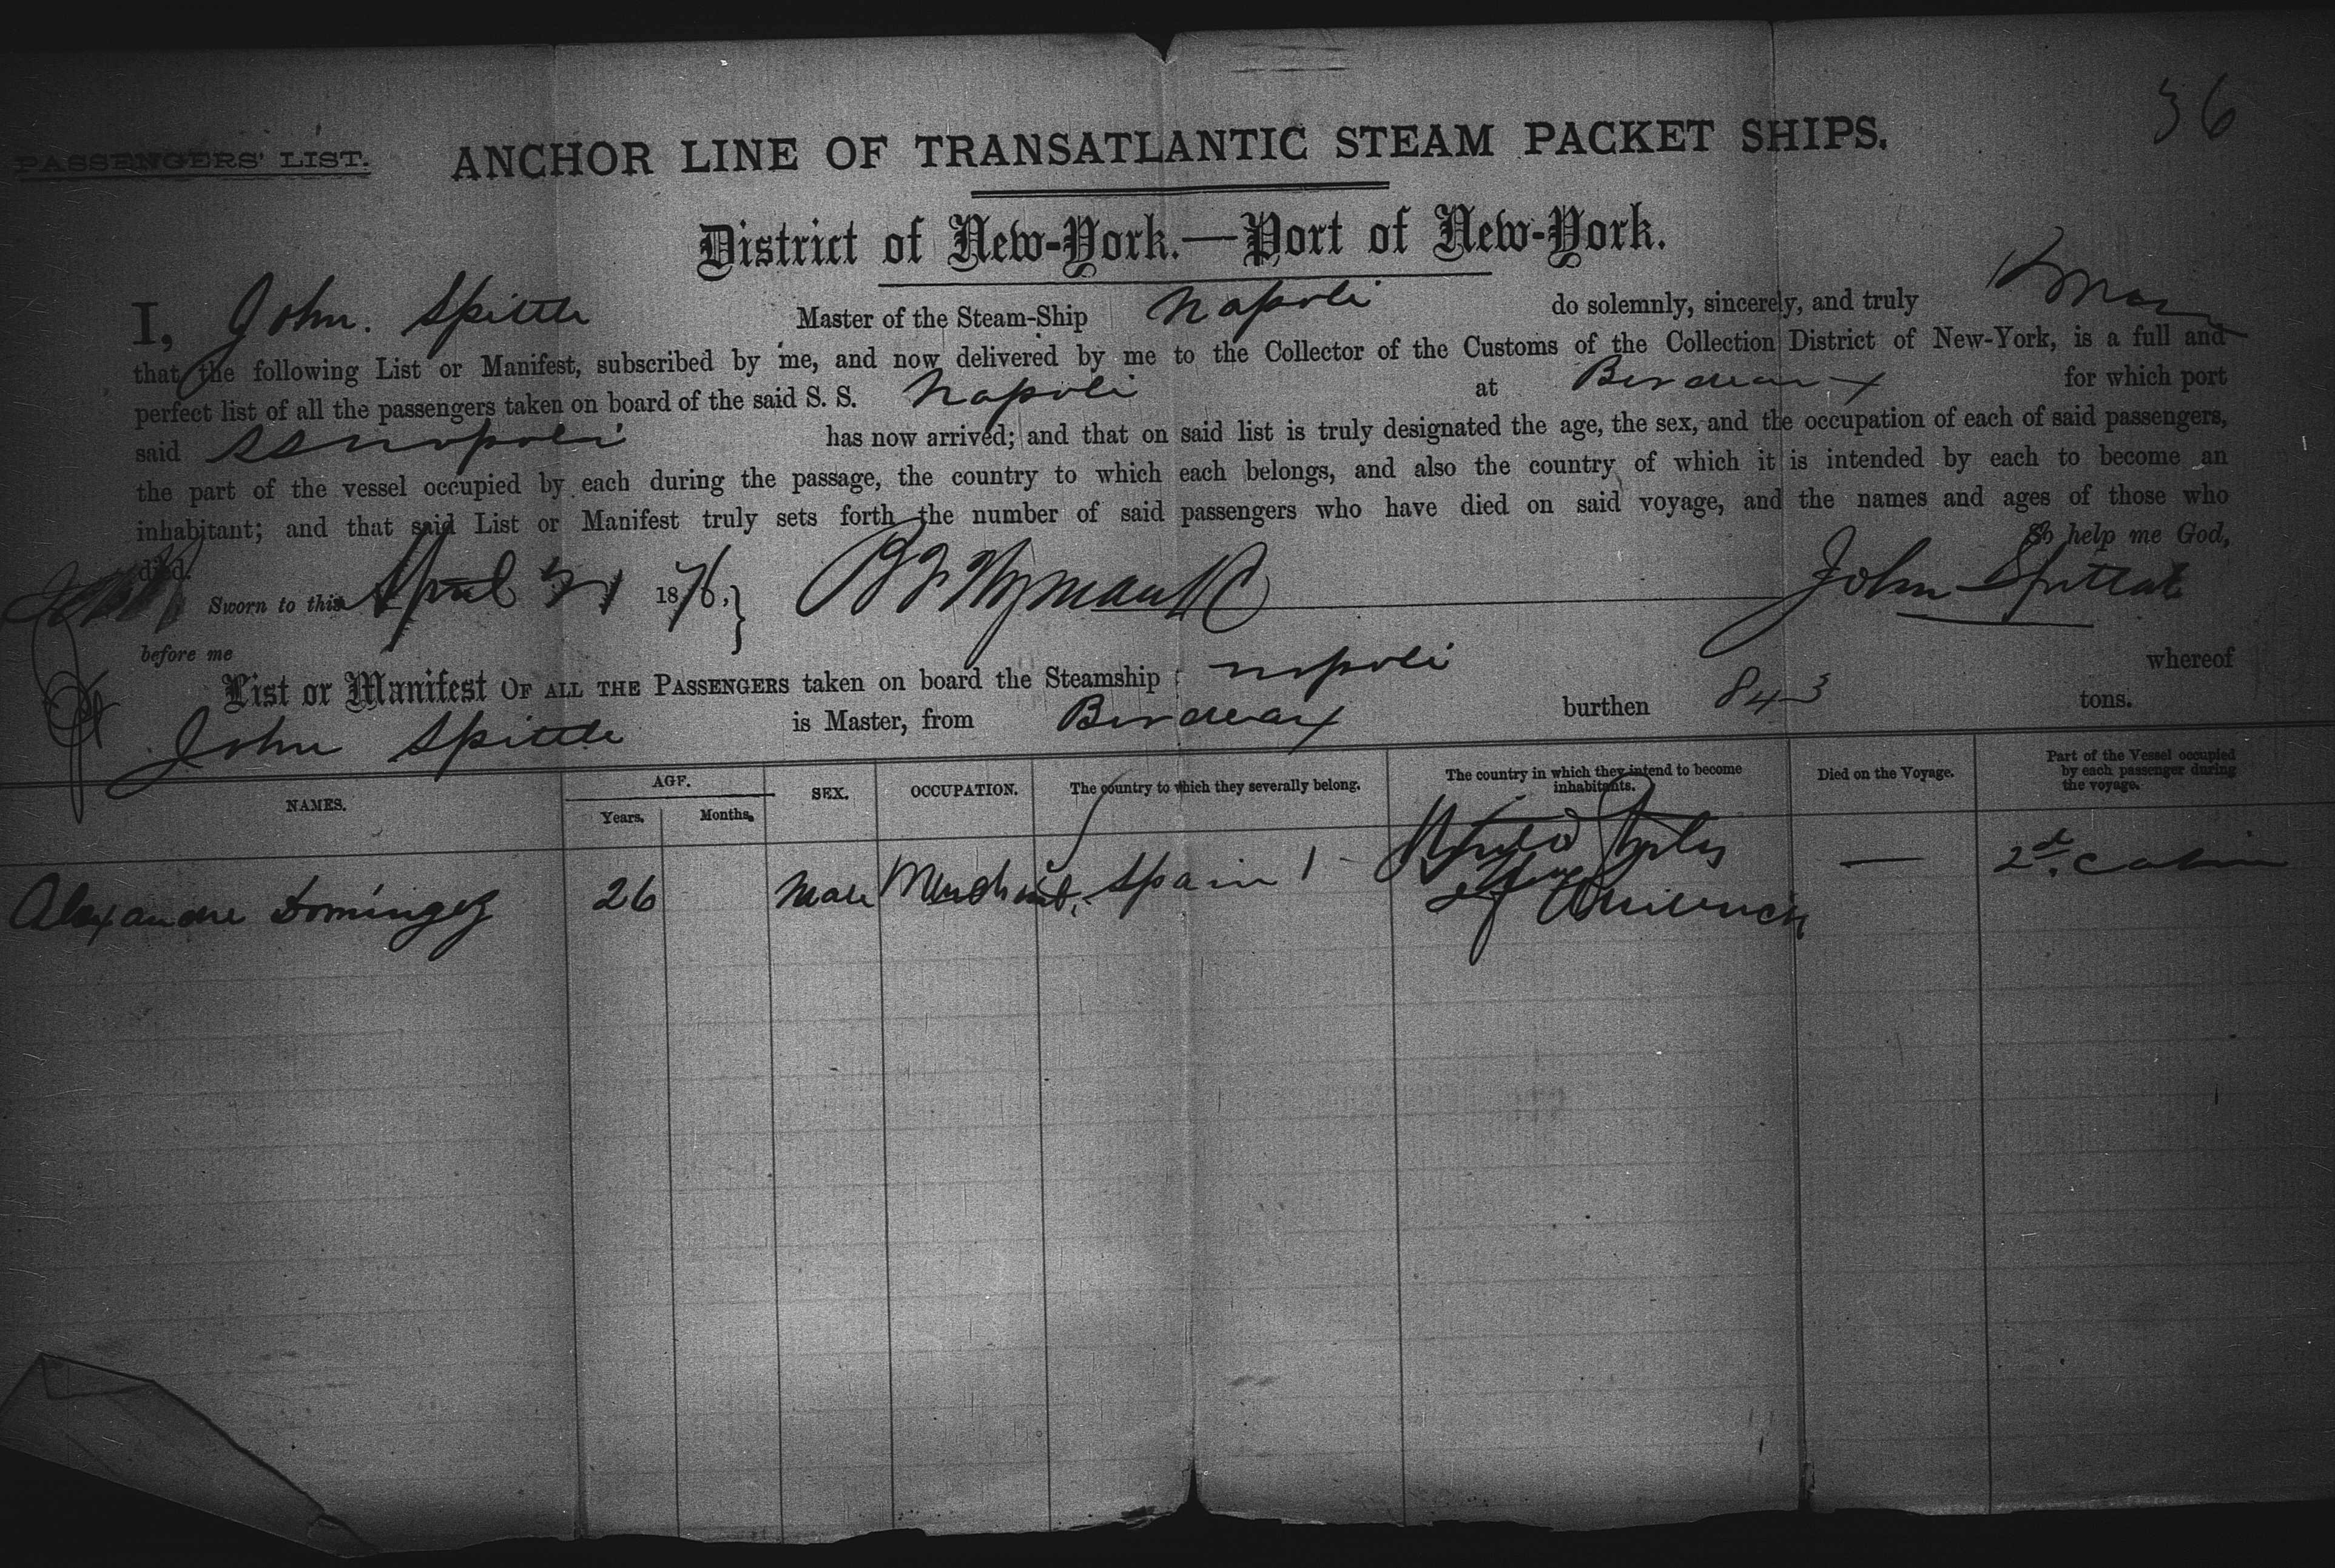 36
PASSENGERS' LIST. ANCHOR LINE OF TRANSATLANTIC STEAM PACKET SHIPS.
District of New-York.—Port of New-York.
I, John. Spittle Master of the Steam-Ship Napoli do solemnly, sincerely, and truly
that the following List or Manifest, subscribed by me, and now delivered by me to the Collector of the Customs of the Collection District of New-York, is a full and
perfect list of all the passengers taken on board of the said S. S. Napoli at Bordeaux for which port
said SS Napoli has now arrived; and that on said list is truly designated the age, the sex, and the occupation of each of said passengers,
the part of the vessel occupied by each during the passage, the country to which each belongs, and also the country of which it is intended by each to become an
inhabitant; and that said List or Manifest truly sets forth the number of said passengers who have died on said voyage, and the names and ages of those who
died. So help me God,
Sworn to this April 21 1876, John Spittle
before me
List or Manifest OF ALL THE PASSENGERS taken on board the Steamship Napoli whereof
John Spittle is Master, from Bordeaux burthen 843 tons.
NAMES. AGE. Years. Months. SEX. OCCUPATION. The country to which they severally belong. The country in which they intend to become inhabitants. Died on the Voyage. Part of the Vessel occupied by each passenger during the voyage.
Alexandre Dominguez 26 Male Merchant, Spain 1 United States of America — 2d. Cabin